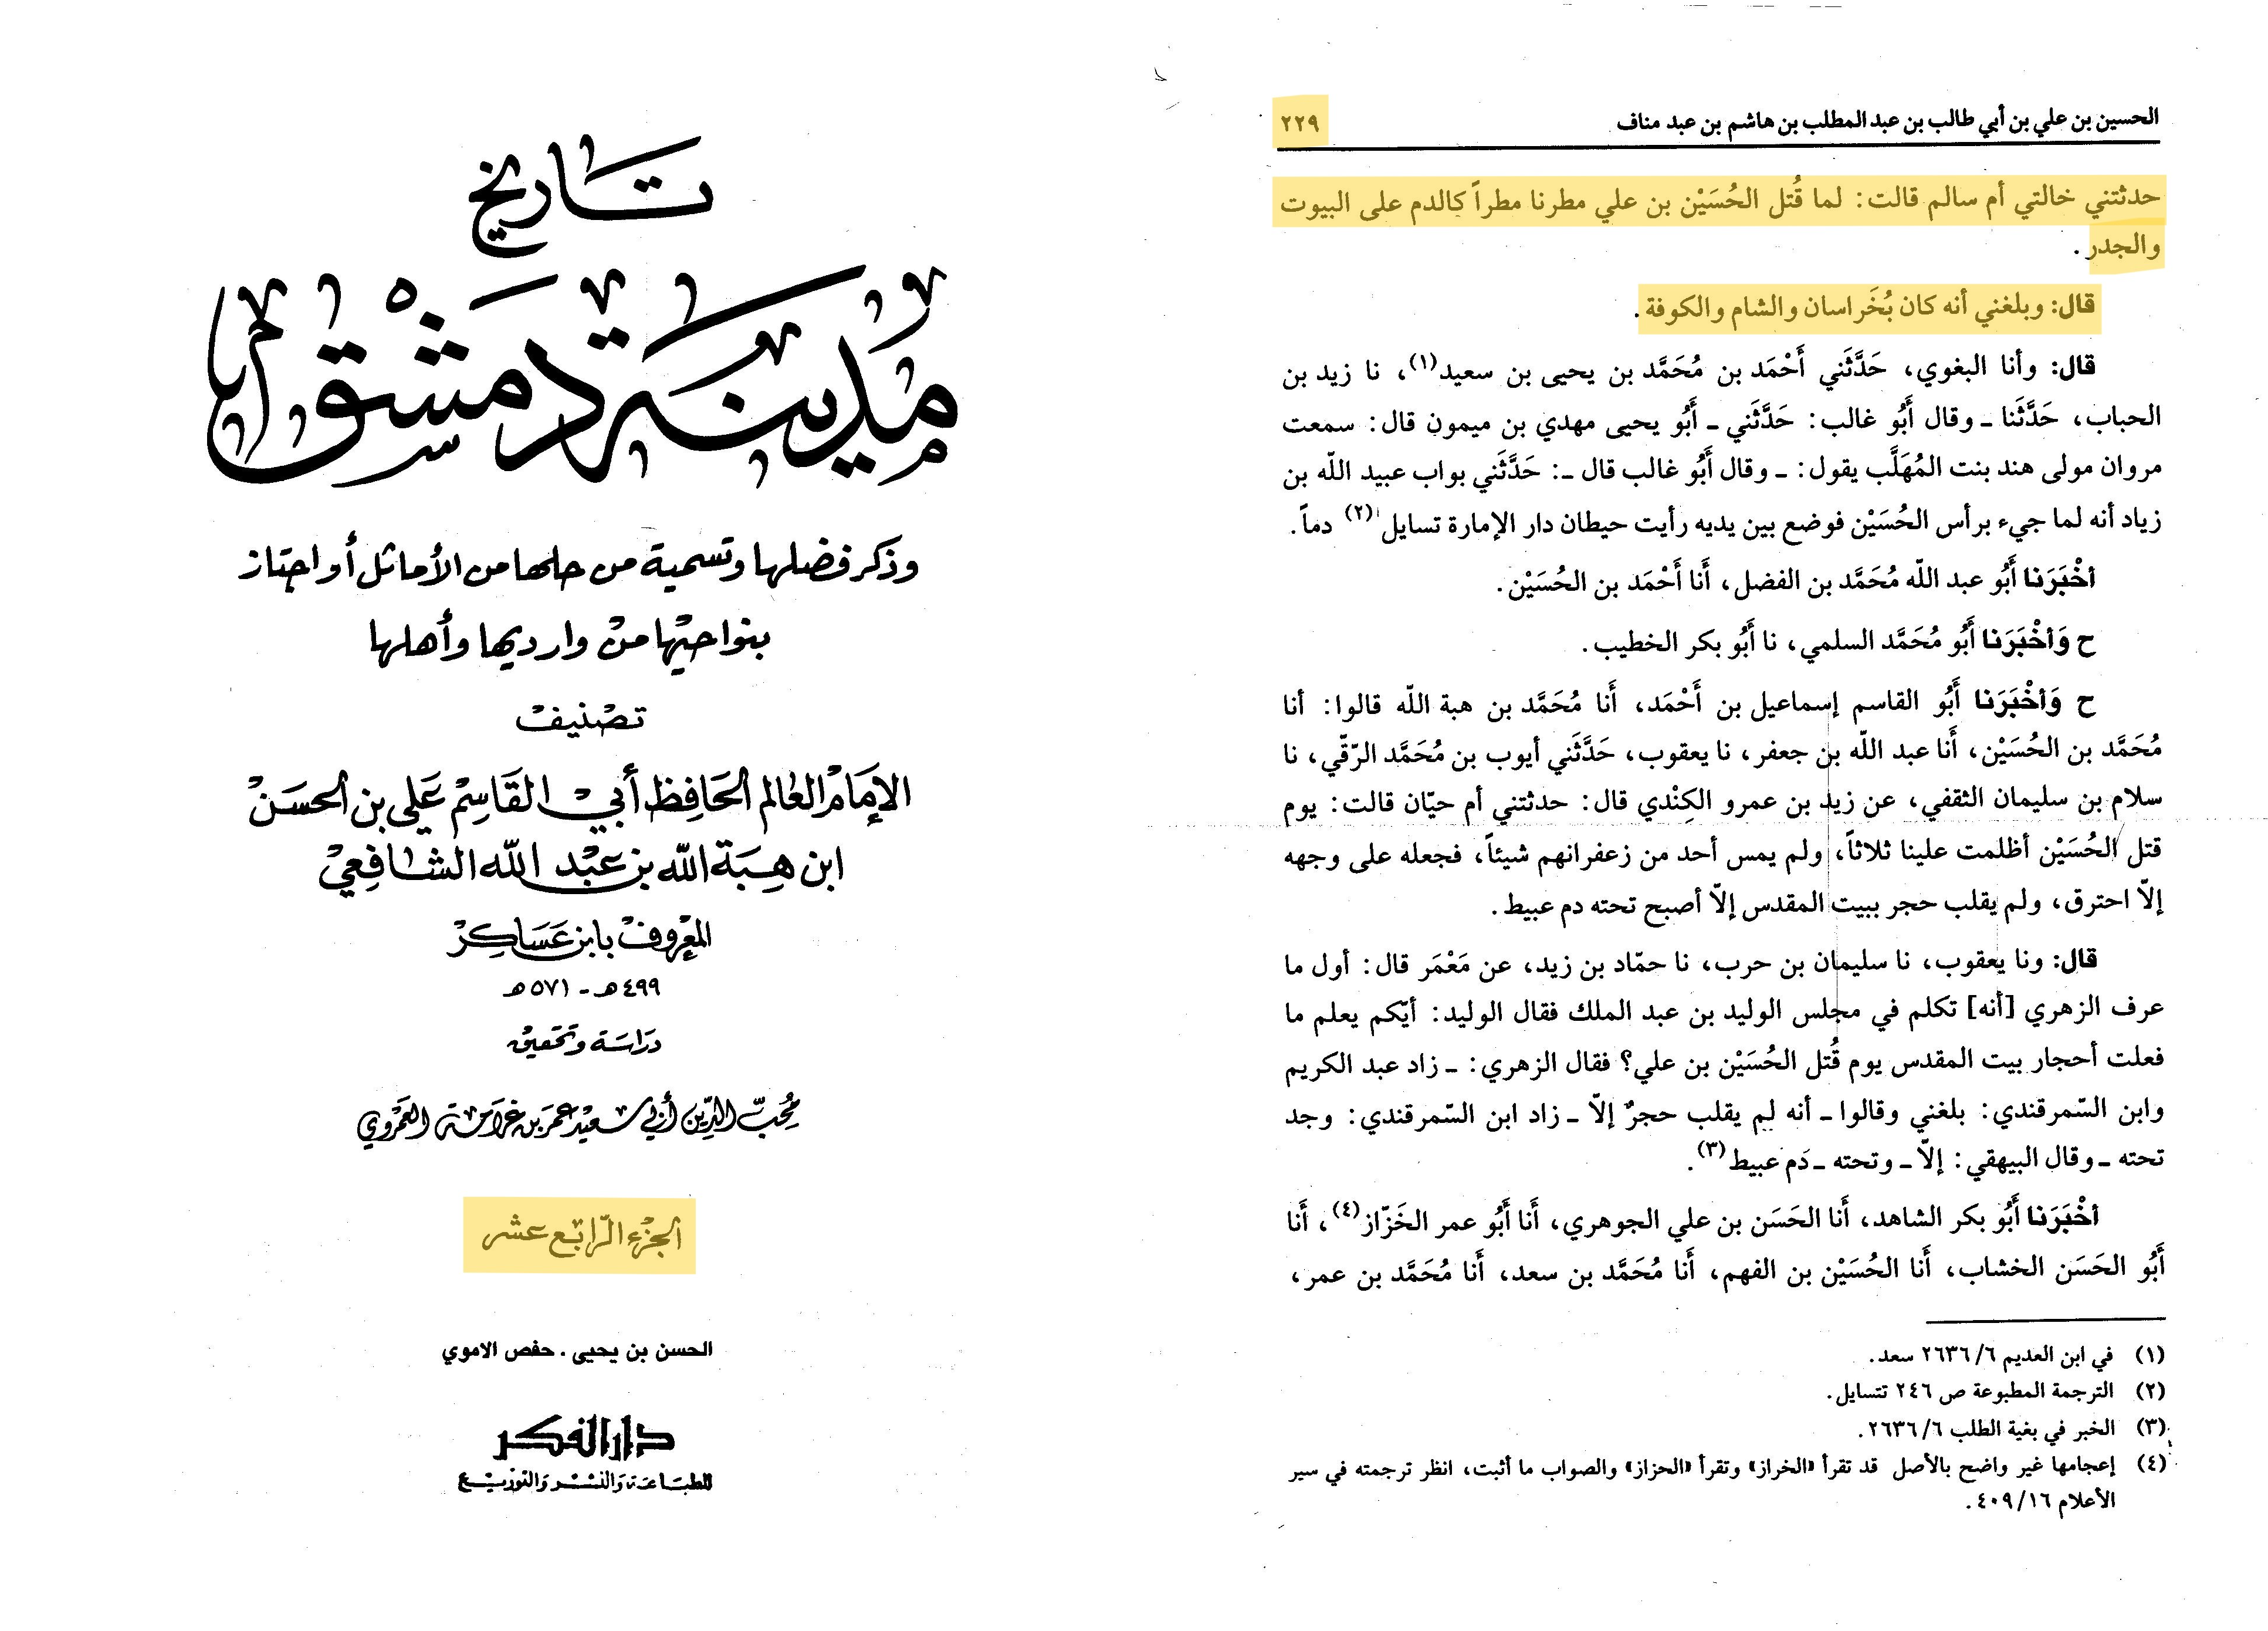 تاريخ
مدينة دمشق
وذكر فضلها وتسمية من حلها من الأماثل أو اجتاز
بنواحيها من وارديها وأهلها
تصنيف
الإمام العالم الحافظ أبي القاسم علي بن الحسن
ابن هبة الله بن عبد الله الشافعي
المعروف بابن عساكر
٤٩٩ هـ - ٥٧١ هـ
دراسة وتحقيق
محب الدين أبي سعيد عمر بن غرامة العمروي
الجزء الرابع عشر
الحسن بن يحيى . حفص الاموي
دار الفكر
للطباعة والنشر والتوزيع
الحسين بن علي بن أبي طالب بن عبد المطلب بن هاشم بن عبد مناف ٢٢٩
حدثتني خالتي أم سالم قالت: لما قُتل الحُسَيْن بن علي مطرنا مطراً كالدم على البيوت
والجدر.
قال: وبلغني أنه كان بُخَراسان والشام والكوفة.
قال: وأنا البغوي، حَدَّثَني أَحْمَد بن مُحَمَّد بن يحيى بن سعيد(١)، نا زيد بن
الحباب، حَدَّثَنا ـ وقال أَبُو غالب: حَدَّثَني ـ أَبُو يحيى مهدي بن ميمون قال: سمعت
مروان مولى هند بنت المُهَلَّب يقول: ـ وقال أَبُو غالب قال ـ: حَدَّثَني بواب عبيد اللّه بن
زياد أنه لما جيء برأس الحُسَيْن فوضع بين يديه رأيت حيطان دار الإمارة تسايل(٢) دماً.
أخْبَرَنا أَبُو عبد اللّه مُحَمَّد بن الفضل، أَنا أَحْمَد بن الحُسَيْن.
ح وَأخْبَرَنا أَبُو مُحَمَّد السلمي، نا أَبُو بكر الخطيب.
ح وَأخْبَرَنا أَبُو القاسم إسماعيل بن أَحْمَد، أَنا مُحَمَّد بن هبة اللّه قالوا: أنا
مُحَمَّد بن الحُسَيْن، أَنا عبد اللّه بن جعفر، نا يعقوب، حَدَّثَني أيوب بن مُحَمَّد الرّقّي، نا
سلام بن سليمان الثقفي، عن زيد بن عمرو الكِنْدي قال: حدثتني أم حيّان قالت: يوم
قتل الحُسَيْن أظلمت علينا ثلاثاً، ولم يمس أحد من زعفرانهم شيئاً، فجعله على وجهه
إلاّ احترق، ولم يقلب حجر ببيت المقدس إلاّ أصبح تحته دم عبيط.
قال: ونا يعقوب، نا سليمان بن حرب، نا حمّاد بن زيد، عن مَعْمَر قال: أول ما
عرف الزهري [أنه] تكلم في مجلس الوليد بن عبد الملك فقال الوليد: أيّكم يعلم ما
فعلت أحجار بيت المقدس يوم قُتل الحُسَيْن بن علي؟ فقال الزهري: ـ زاد عبد الكريم
وابن السّمرقندي: بلغني وقالوا ـ أنه لم يقلب حجرٌ إلاّ ـ زاد ابن السّمرقندي: وجد
تحته ـ وقال البيهقي: إلاّ ـ وتحته ـ دَم عبيط(٣).
أخْبَرَنا أَبُو بكر الشاهد، أَنا الحَسَن بن علي الجوهري، أَنا أَبُو عمر الخَزّاز(٤)، أَنا
أَبُو الحَسَن الخشاب، أَنا الحُسَيْن بن الفهم، أَنا مُحَمَّد بن سعد، أَنا مُحَمَّد بن عمر،
(١) في ابن العديم ٦/ ٢٦٣٦ سعد.
(٢) الترجمة المطبوعة ص ٢٤٦ تتسايل.
(٣) الخبر في بغية الطلب ٦/ ٢٦٣٦.
(٤) إعجامها غير واضح بالأصل قد تقرأ «الخراز» وتقرأ «الحزاز» والصواب ما أثبت، انظر ترجمته في سير
الأعلام ١٦/ ٤٠٩.